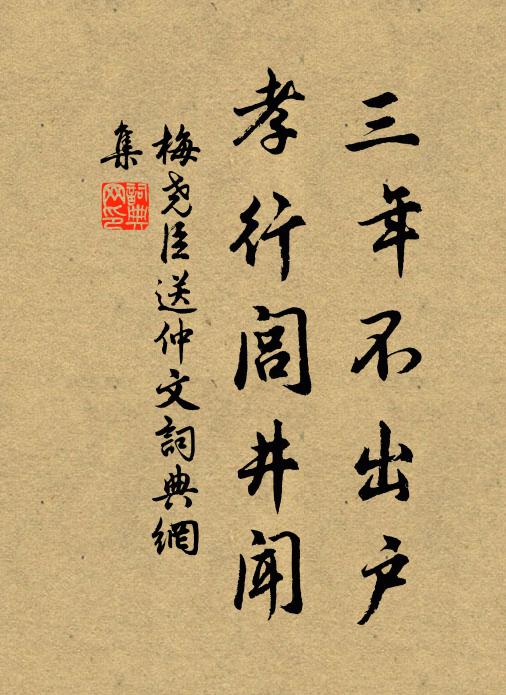 三年不出户
孝行闾井闻
梅尧臣送仲文词典網
集
詞典网印